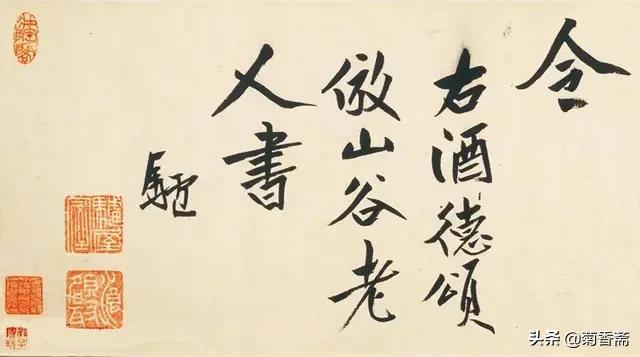 令
右酒德頌
倣山谷老
人書
头条 @菊香斋